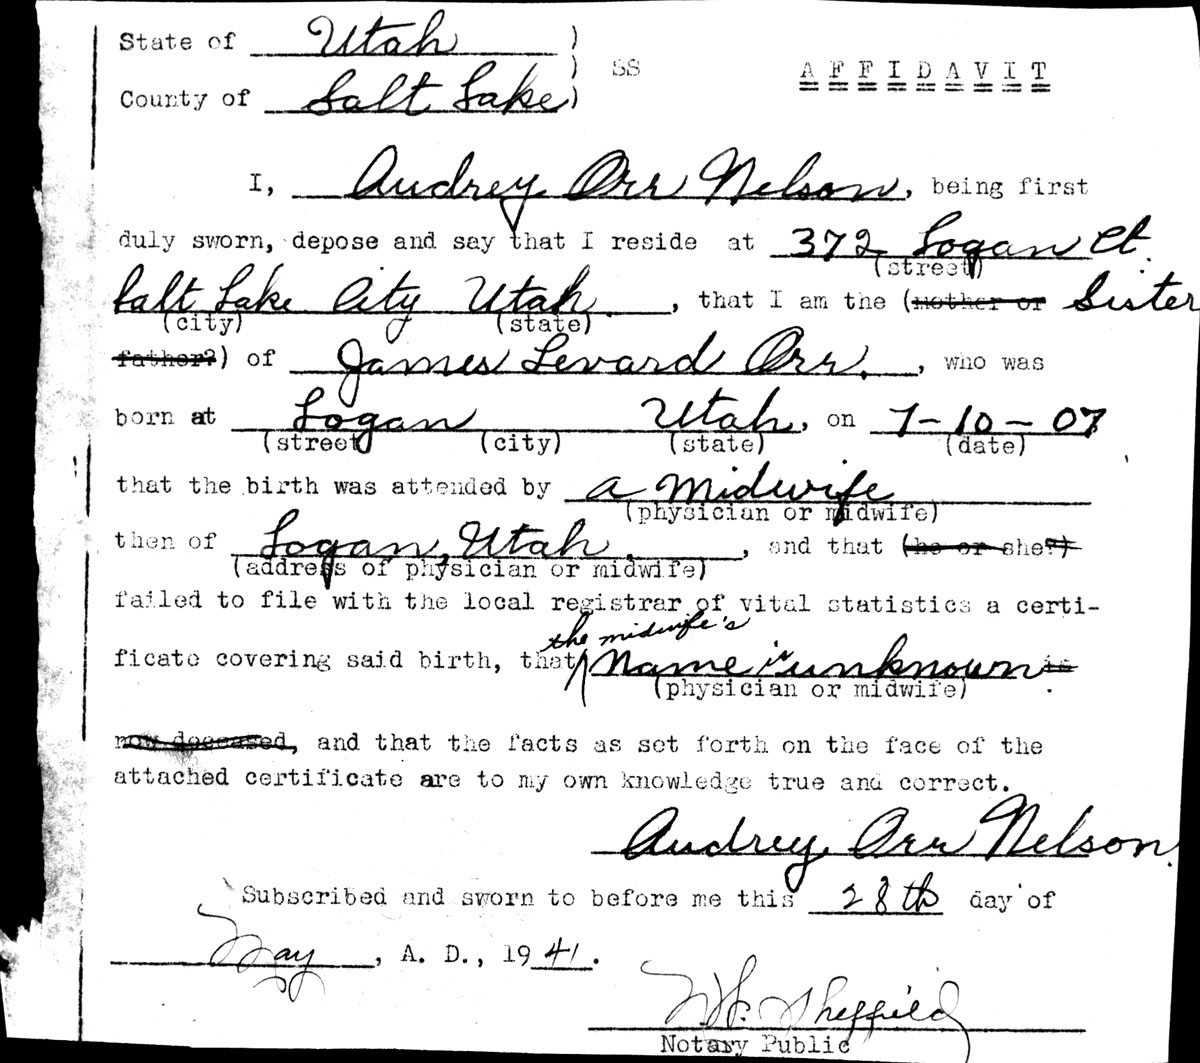 State of Utah )
) SS A F F I D A V I T
County of Salt Lake )
I, Audrey Orr Nelson, being first
duly sworn, depose and say that I reside at 372 Logan Ct.
(street)
Salt Lake City Utah, that I am the (mother or Sister
(city) (state)
father?) of James Levard Orr, who was
born at Logan Utah, on 7-10-07
(street (city) (state) (date)
that the birth was attended by a Midwife
(physician or midwife)
then of Logan, Utah, and that (he or she?)
(address of physician or midwife)
failed to file with the local registrar of vital statistics a certi-
the midwife's
ficate covering said birth, that name is unknown is
(physician or midwife)
now deceased, and that the facts as set forth on the face of the
attached certificate are to my own knowledge true and correct.
Audrey Orr Nelson.
Subscribed and sworn to before me this 28th day of
May, A. D., 1941.
Sheffield
Notary Public